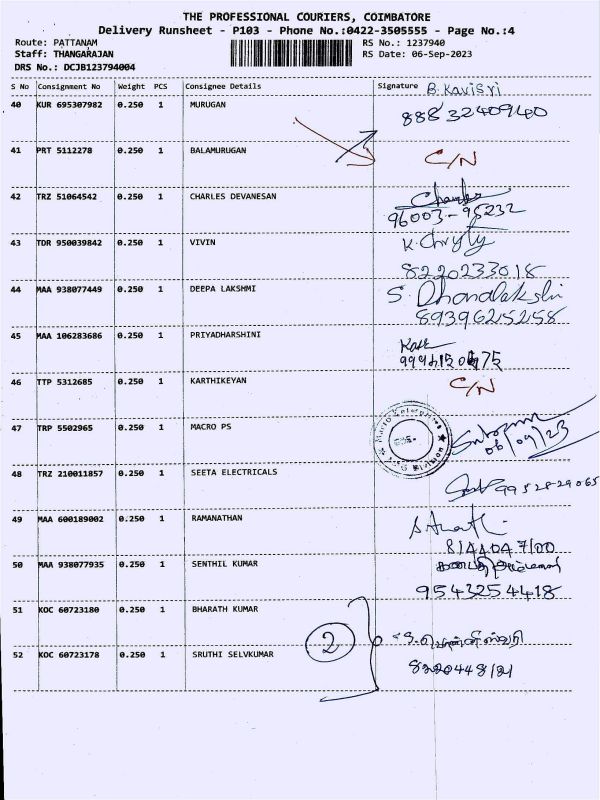 THE PROFESSIONAL COURIERS, COIMBATORE
Delivery Runsheet - P103 - Phone No.:0422-3505555 - Page No.:4
Route: PATTANAM RS No.: 1237940
Staff: THANGARAJAN RS Date: 06-Sep-2023
DRS No.: DCJB123794004
S No Consignment No Weight PCS Consignee Details Signature B. Kavisri
40 KUR 695307982 0.250 1 MURUGAN 88832409140
41 PRT 5112278 0.250 1 BALAMURUGAN C/N
42 TRZ 51064542 0.250 1 CHARLES DEVANESAN Charles
96003-95232
43 TDR 950039842 0.250 1 VIVIN K.
8220233018
44 MAA 938077449 0.250 1 DEEPA LAKSHMI S. Dhandlakshi
8939625258
45 MAA 106283686 0.250 1 PRIYADHARSHINI
46 TTP 5312685 0.250 1 KARTHIKEYAN C/N
47 TRP 5502965 0.250 1 MACRO PS
06/09/23
48 TRZ 210011857 0.250 1 SEETA ELECTRICALS 9952829065
49 MAA 600189002 0.250 1 RAMANATHAN
8144047100
50 MAA 938077935 0.250 1 SENTHIL KUMAR
9543254418
51 KOC 60723180 0.250 1 BHARATH KUMAR
2
52 KOC 60723178 0.250 1 SRUTHI SELVKUMAR 8220448121